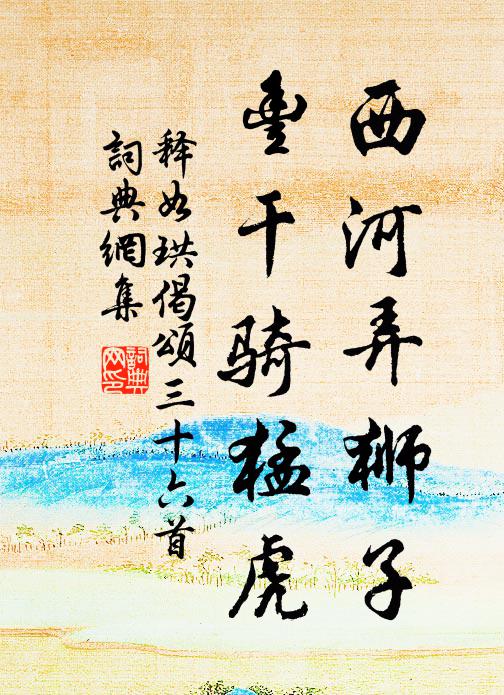 西河弄狮子
豊干骑猛虎
释如珙偈颂三十六首
詞典網集
詞典网印